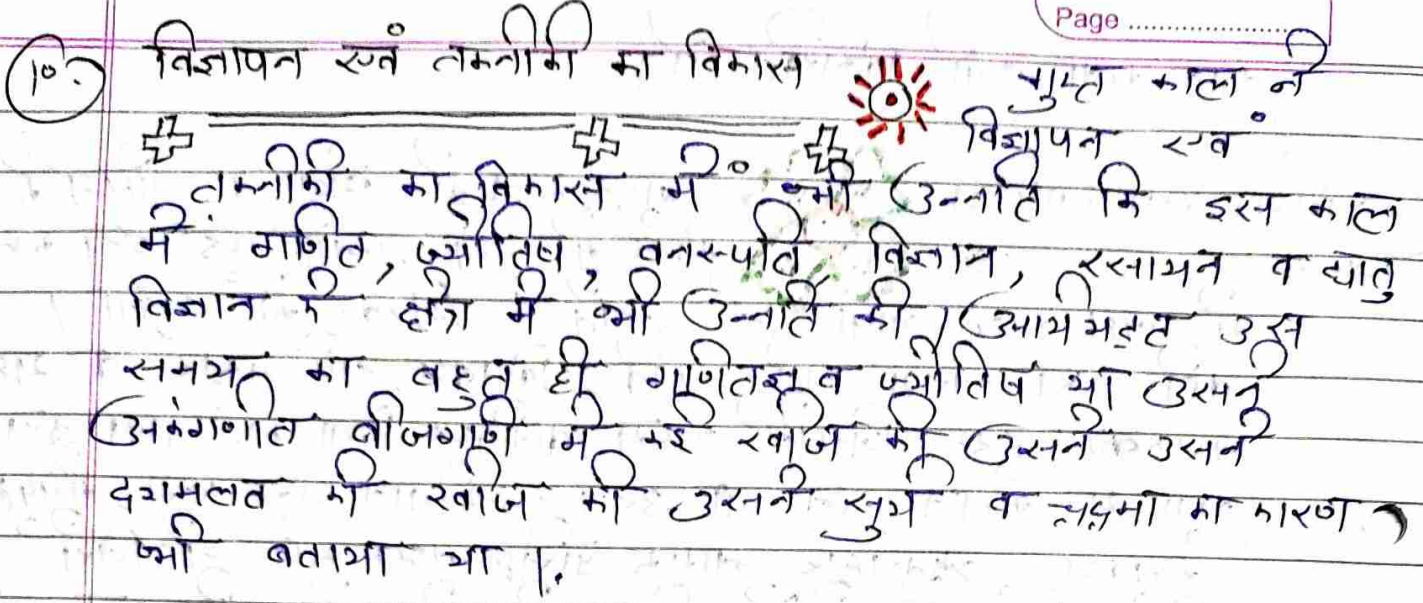 Page
10. विज्ञापन एवं तकनीकी का विकास
गुप्त काल ने
विज्ञापन एवं
तकनीकी का विकास में भी उन्नति कि इस काल
में गणित, ज्योतिष, वनस्पति विज्ञान, रसायन व धातु
विज्ञान के क्षेत्र में भी उन्नति की। आर्यभट्ट उस
समय का बहुत ही गणितज्ञ व ज्योतिष था उसने
अकंगणीत बीजगणि में कई खोज की उसने उसने
दशमलव की खोज की उसने सुर्य व चद्रमा का कारण
भी बताया था।